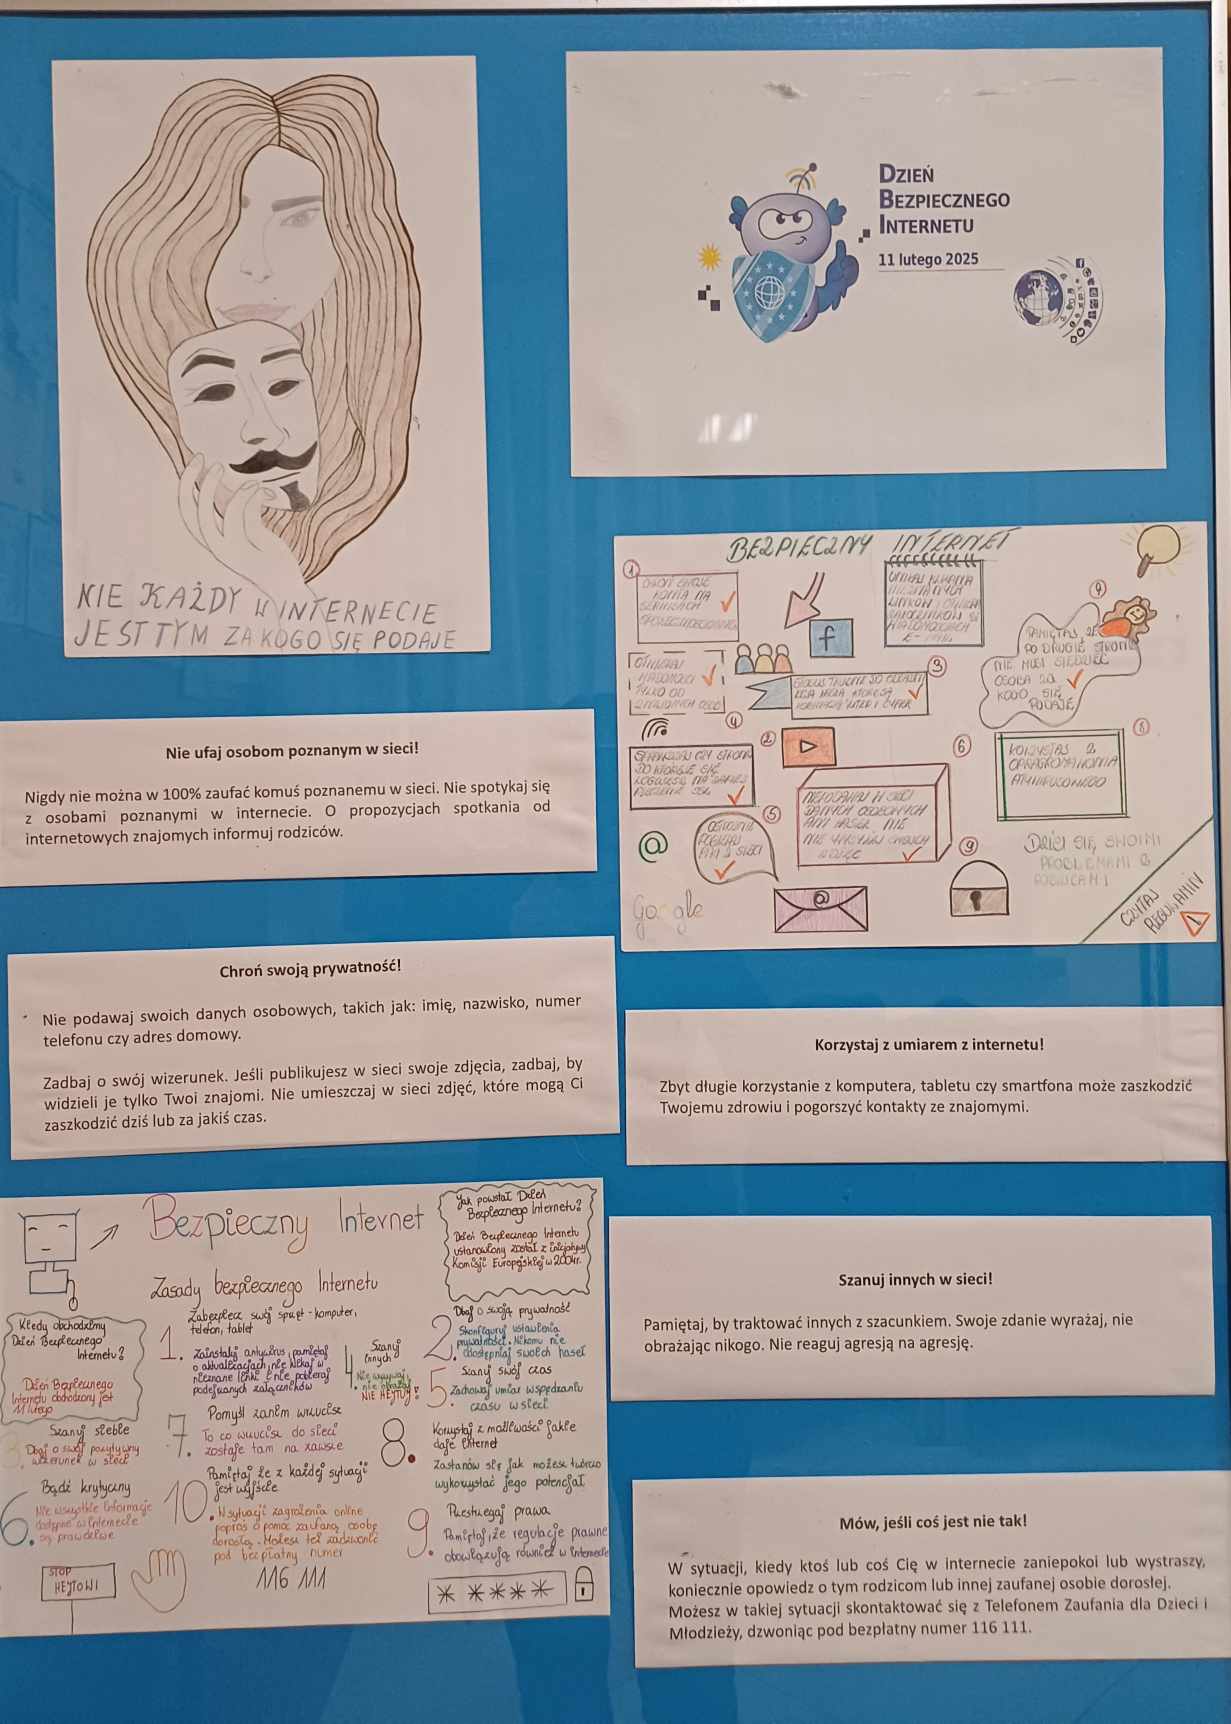 NIE KAŻDY W INTERNECIE
JEST TYM ZA KOGO SIĘ PODAJE
DZIEŃ
BEZPIECZNEGO
INTERNETU
11 lutego 2025
BEZPIECZNY INTERNET
1
KONTA NA
f
4
PAMIĘTAJ ŻE
PO DRUGIEJ STRONIE
NIE MUSI SIEDZIEĆ
OSOBA ZA
KOGO SIĘ
PODAJE
TYLKO OD
3
4
2
SPRAWDZAJ CZY STRONA
DO KTÓREJ SIĘ
5
6
NIE PODAWAJ W SIECI
DANYCH OSOBOWYCH
ANI HASEŁ
8
KORZYSTAJ Z
OPROGRAMOWANIA
ANTYWIRUSOWEGO
@
Google
@
9
DZIEL SIĘ SWOIMI
PROBLEMAMI Z
RODZICAMI
CZYTAJ
REGULAMINY
Nie ufaj osobom poznanym w sieci!
Nigdy nie można w 100% zaufać komuś poznanemu w sieci. Nie spotykaj się
z osobami poznanymi w internecie. O propozycjach spotkania od
internetowych znajomych informuj rodziców.
Chroń swoją prywatność!
Nie podawaj swoich danych osobowych, takich jak: imię, nazwisko, numer
telefonu czy adres domowy.
Zadbaj o swój wizerunek. Jeśli publikujesz w sieci swoje zdjęcia, zadbaj, by
widzieli je tylko Twoi znajomi. Nie umieszczaj w sieci zdjęć, które mogą Ci
zaszkodzić dziś lub za jakiś czas.
Korzystaj z umiarem z internetu!
Zbyt długie korzystanie z komputera, tabletu czy smartfona może zaszkodzić
Twojemu zdrowiu i pogorszyć kontakty ze znajomymi.
Bezpieczny Internet
Jak powstał Dzień
Bezpiecznego Internetu?
Dzień Bezpiecznego Internetu
ustanowiony został z inicjatywy
Komisji Europejskiej w 2004r.
Zasady bezpiecznego Internetu
Kiedy obchodzimy
Dzień Bezpiecznego
Internetu?
Dzień Bezpiecznego
Internetu obchodzony jest
11 lutego
1. Zabezpiecz swój sprzęt - komputer,
telefon, tablet
Zainstaluj antywirus, pamiętaj
o aktualizacjach, nie klikaj w
nieznane linki i nie pobieraj
podejrzanych załączników
2. Dbaj o swoją prywatność
Skonfiguruj ustawienia
prywatności. Nikomu nie
udostępniaj swoich haseł
3. Szanuj siebie
Dbaj o swój pozytywny
wizerunek w sieci
4. Szanuj
innych
Nie wyzywaj,
nie obrażaj
NIE HEJTUJ!
5. Szanuj swój czas
Zachowaj umiar w spędzaniu
czasu w sieci
6. Bądź krytyczny
Nie wszystkie informacje
dostępne w internecie
są prawdziwe
7. Pomyśl zanim wrzucisz
To co wrzucisz do sieci
zostaje tam na zawsze
8. Korzystaj z możliwości jakie
daje internet
Zastanów się jak możesz twórczo
wykorzystać jego potencjał
9. Przestrzegaj prawa
Pamiętaj, że regulacje prawne
obowiązują również w internecie
10. Pamiętaj że z każdej sytuacji
jest wyjście
W sytuacji zagrożenia online
poproś o pomoc zaufaną osobę
dorosłą. Możesz też zadzwonić
pod bezpłatny numer
116 111
STOP
HEJTOWI
* * * * *
Szanuj innych w sieci!
Pamiętaj, by traktować innych z szacunkiem. Swoje zdanie wyrażaj, nie
obrażając nikogo. Nie reaguj agresją na agresję.
Mów, jeśli coś jest nie tak!
W sytuacji, kiedy ktoś lub coś Cię w internecie zaniepokoi lub wystraszy,
koniecznie opowiedz o tym rodzicom lub innej zaufanej osobie dorosłej.
Możesz w takiej sytuacji skontaktować się z Telefonem Zaufania dla Dzieci i
Młodzieży, dzwoniąc pod bezpłatny numer 116 111.